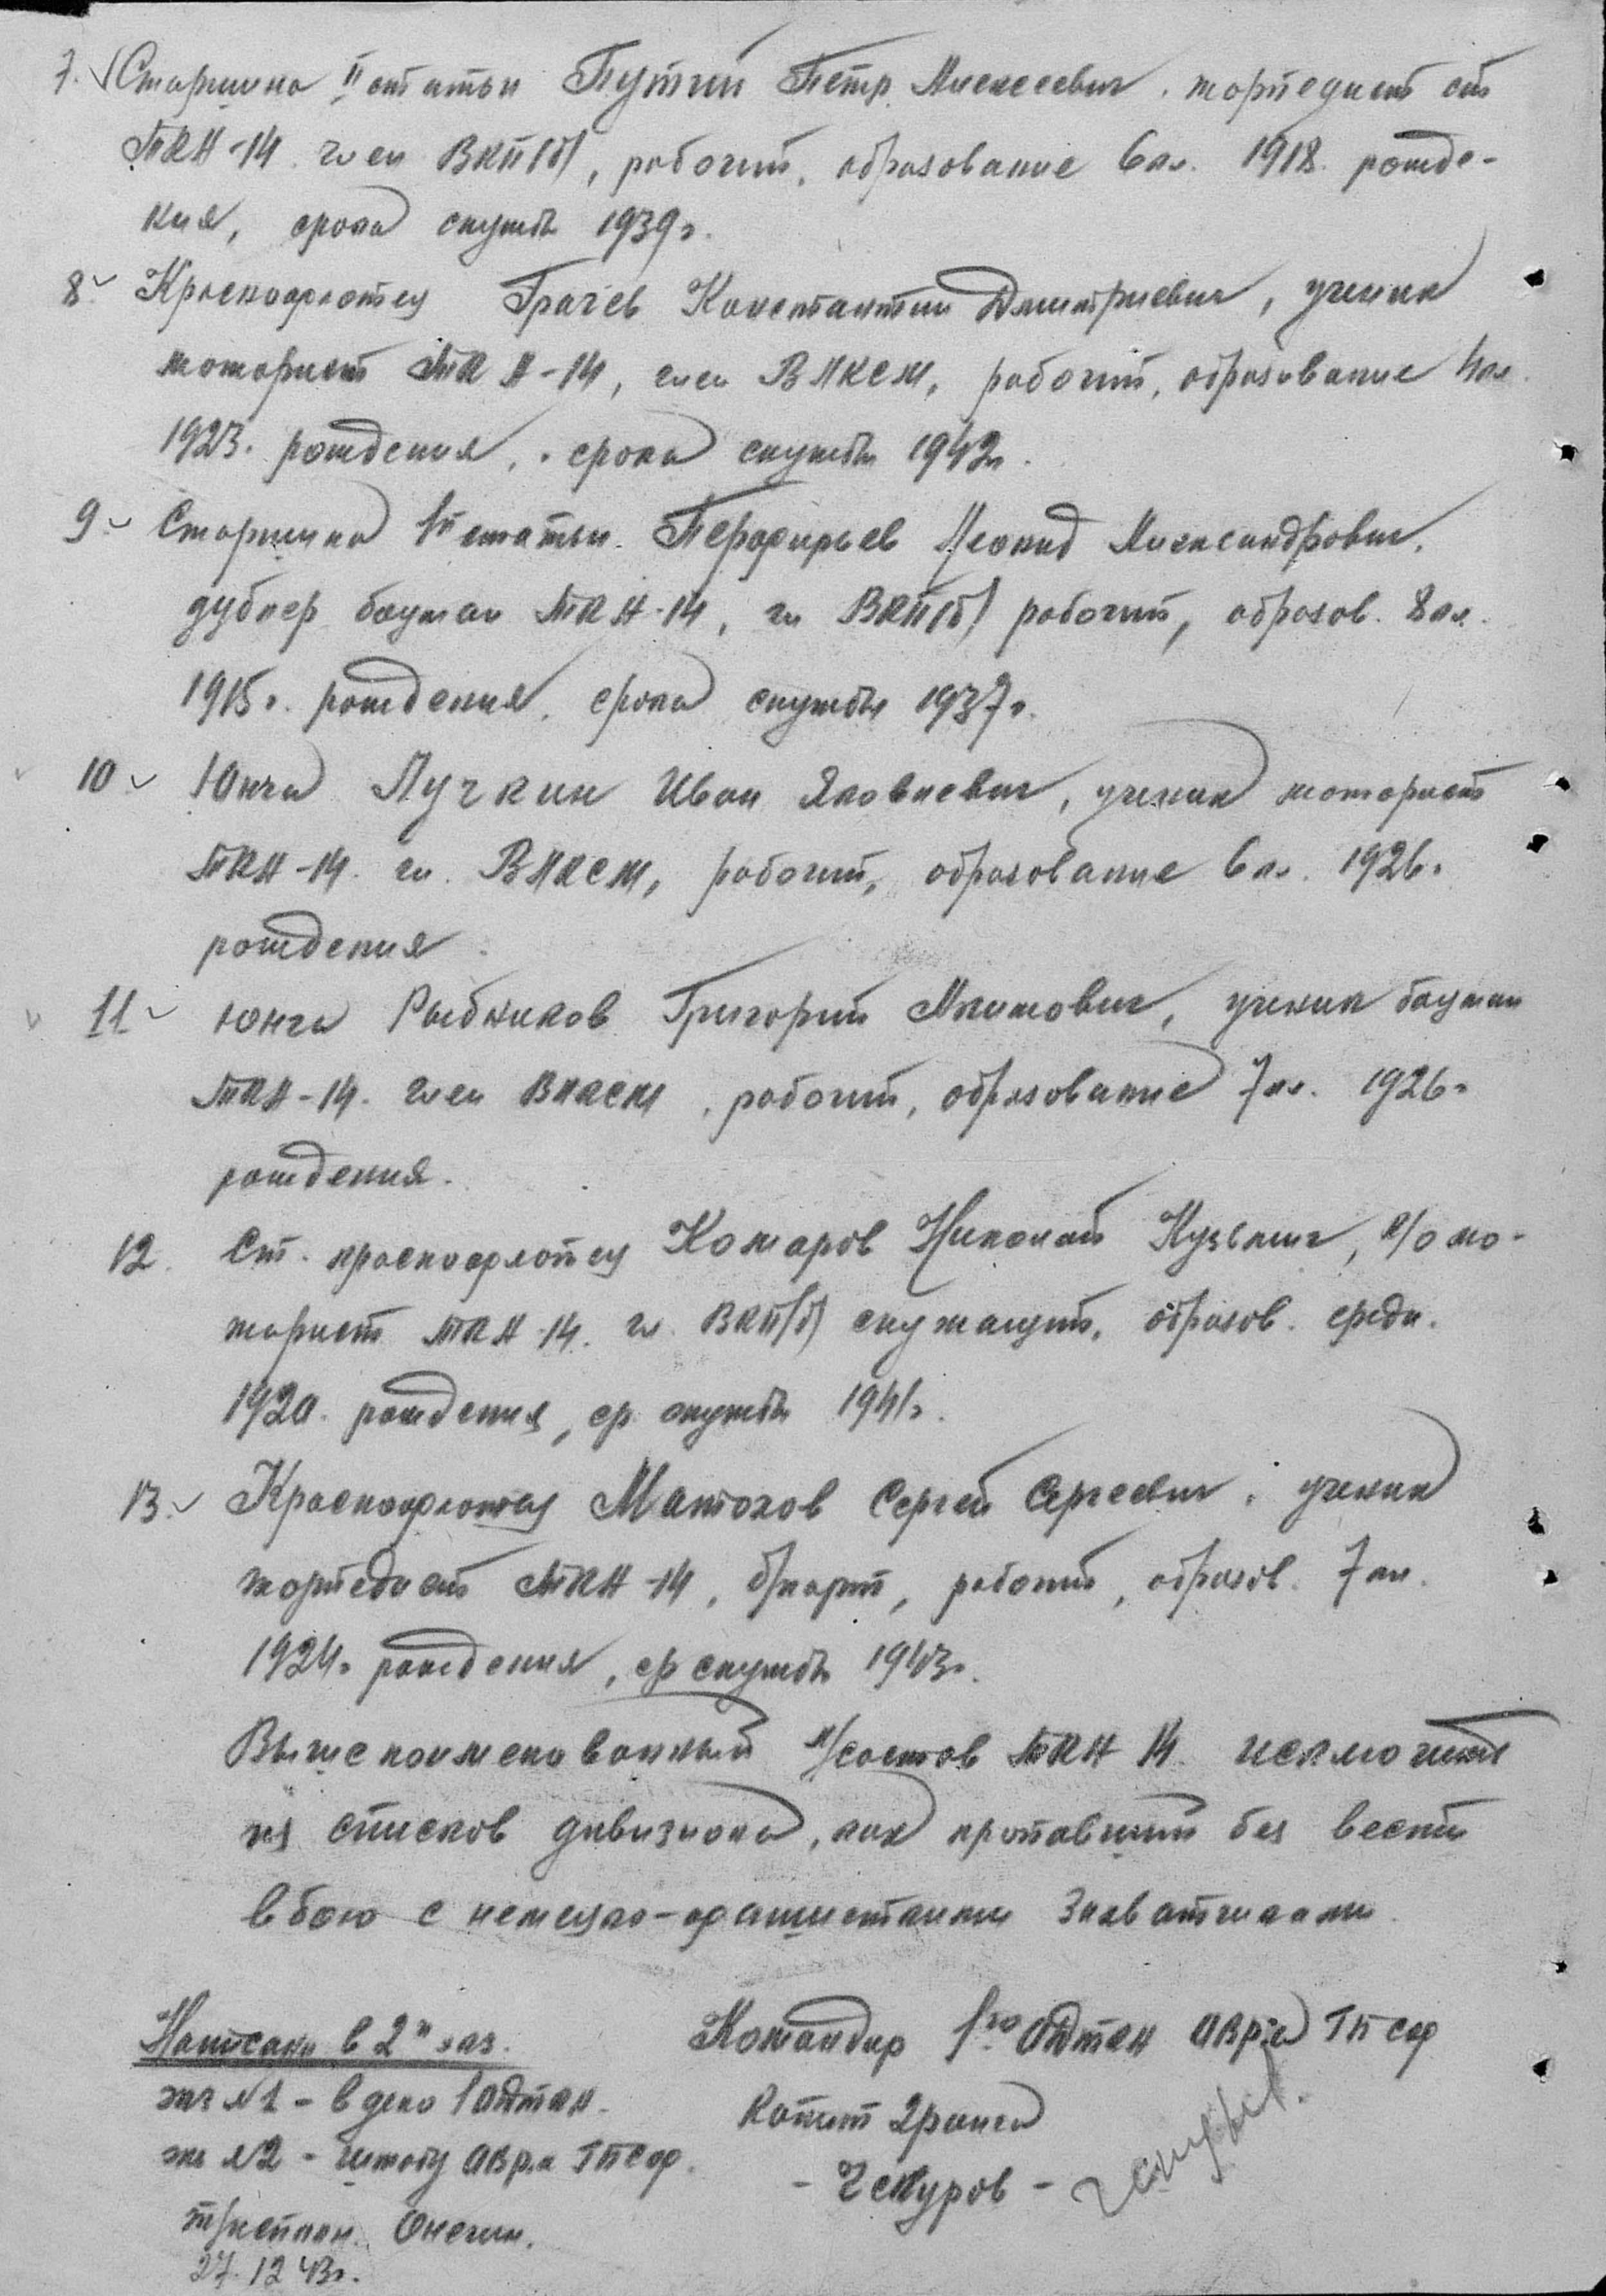 7. Старшина II статьи Путий Петр Алексеевич. торпедист ст
ТКА-14. член ВКП(б), рабочий, образование 6кл. 1918. рожде-
ния, срока службы 1939г.
8. Краснофлотец Грачев Константин Дмитриевич, ученик
моторист ТКА-14, член ВЛКСМ, рабочий, образование 4кл.
1923. рождения, срока службы 1942г.
9. Старшина 1й статьи. Перфирьев Леонид Александрович.
дублер боцман ТКА-14, чл ВКП(б) рабочий, образов. 8кл.
1915г. рождения. срока службы 1937г.
10 Юнга Лучкин Иван Яковлевич, ученик моторист
ТКА-14. чл. ВЛКСМ, рабочий, образование 6кл. 1926г
рождения.
11 юнга Рыбников Григорий Акимович, ученик боцман
ТКА-14. член ВЛКСМ, рабочий, образование 7кл. 1926г
рождения.
12. Ст. краснофлотец Комаров Николай Кузьмич, с/о мо-
торист ТКА-14. чл. ВКП(б) служащий, образов. средн.
1920. рождения, ср. службы 1941г.
13. Краснофлотец Матохов Сергей Сергеевич. ученик
торпедист ТКА-14, б/парт, рабочий, образов. 7кл.
1924г рождения, ср службы 1943г.
Вышепоименованный л/состав ТКА 14 исключить
из списков дивизиона, как пропавший без вести
в бою с немецко-фашистскими захватчиками.
Написано в 2х экз.
экз №1 - в дело 1 одтка.
экз №2 - штабу ОВРа ТПСФ.
27.12 43г.
Командир 1го Одтка ОВРа ТПСФ
Капит 2ранга
- Чекуров -